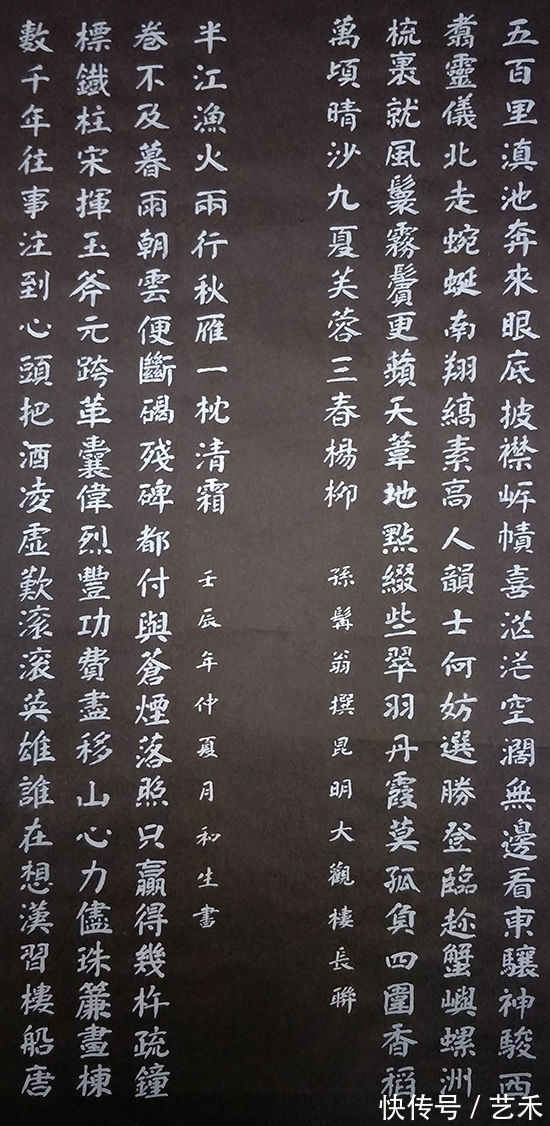 五百里滇池奔來眼底披襟岸幘喜茫茫空濶無邊看東驤神駿西
翥靈儀北走蜿蜒南翔縞素高人韻士何妨選勝登臨趁蟹嶼螺洲
梳裏就風鬟霧鬢更蘋天葦地點綴些翠羽丹霞莫孤負四圍香稻
萬頃晴沙九夏芙蓉三春楊柳
孫髯翁撰昆明大觀樓長聯
數千年往事注到心頭把酒凌虛歎滾滾英雄誰在想漢習樓船唐
標鐵柱宋揮玉斧元跨革囊偉烈豐功費盡移山心力儘珠簾畫棟
卷不及暮雨朝雲便斷碣殘碑都付與蒼煙落照只贏得幾杵疏鐘
半江漁火兩行秋雁一枕清霜
壬辰年仲夏月和生書
快传号 / 艺禾